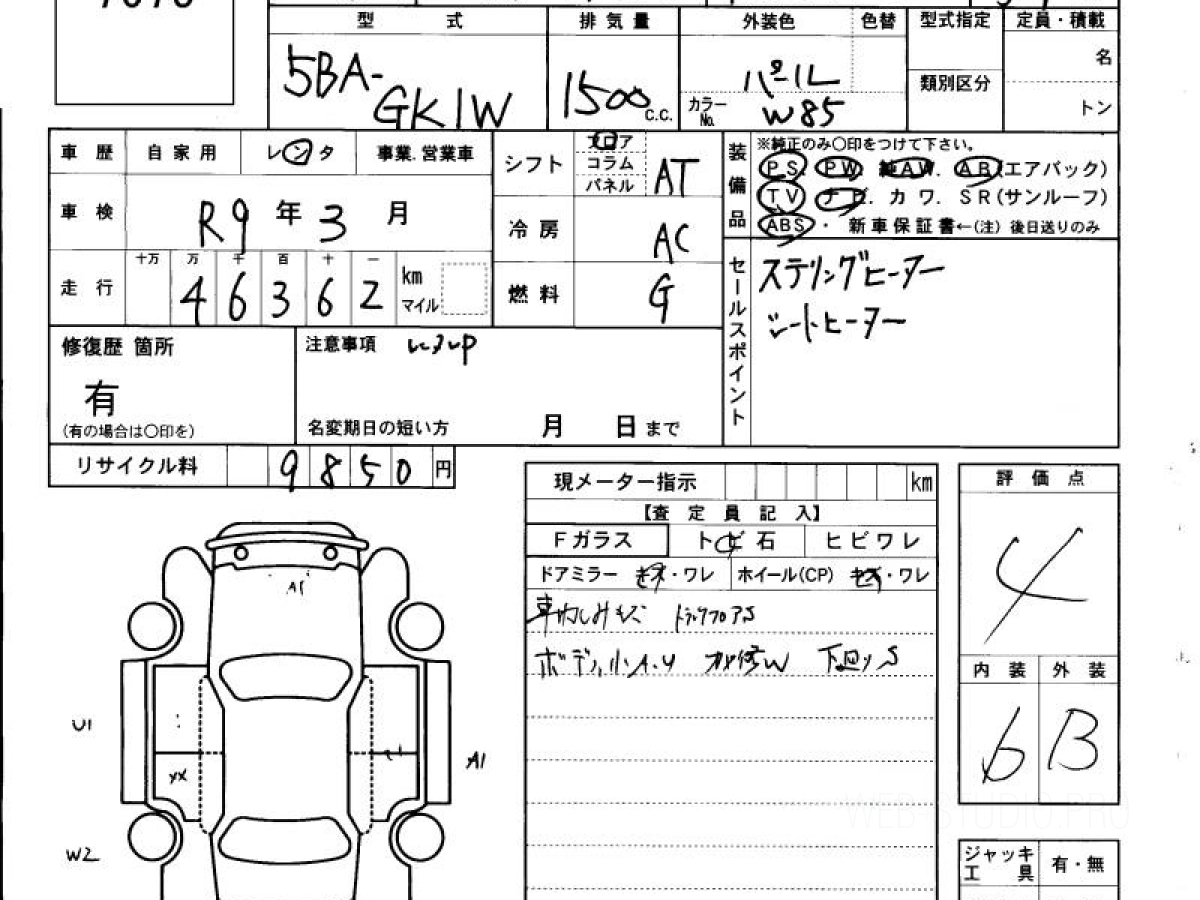 型 式 排 気 量 外装色 色替 型式指定 定員・積載
5BA-GK1W
1500 c.c.
パール
カラーNo. W85
類別区分
名
トン
車 歴 自 家 用 レ ン タ 事業. 営業車
車 検 R9 年 3 月
走 行 十万 万 千 百 十 一
4 6 3 6 2 km
マイル
シフト フロア
コラム
パネル
AT
冷 房 AC
燃 料 G
装備品
※純正のみ〇印をつけて下さい。
PS. PW. 純AW. AB(エアバック)
TV ナビ. カワ. SR(サンルーフ)
ABS ・ 新車保証書←(注) 後日送りのみ
セールスポイント
ステリングヒーター
シートヒーター
修復歴 箇所
有
(有の場合は〇印を)
注意事項 レンタUP
名変期日の短い方 月 日 まで
リサイクル料 9 8 5 0 円
現メーター指示 km
【査 定 員 記 入】
Fガラス トビ石 ヒビワレ
ドアミラー キズ・ワレ ホイール(CP) キズ・ワレ
ボディ 小A.U 下回りS
評 価 点
4
内 装 外 装
6 B
ジャッキ
工 具
有・無
A1
U1
XX
A1
W2
WEB-STUDIO.PRO